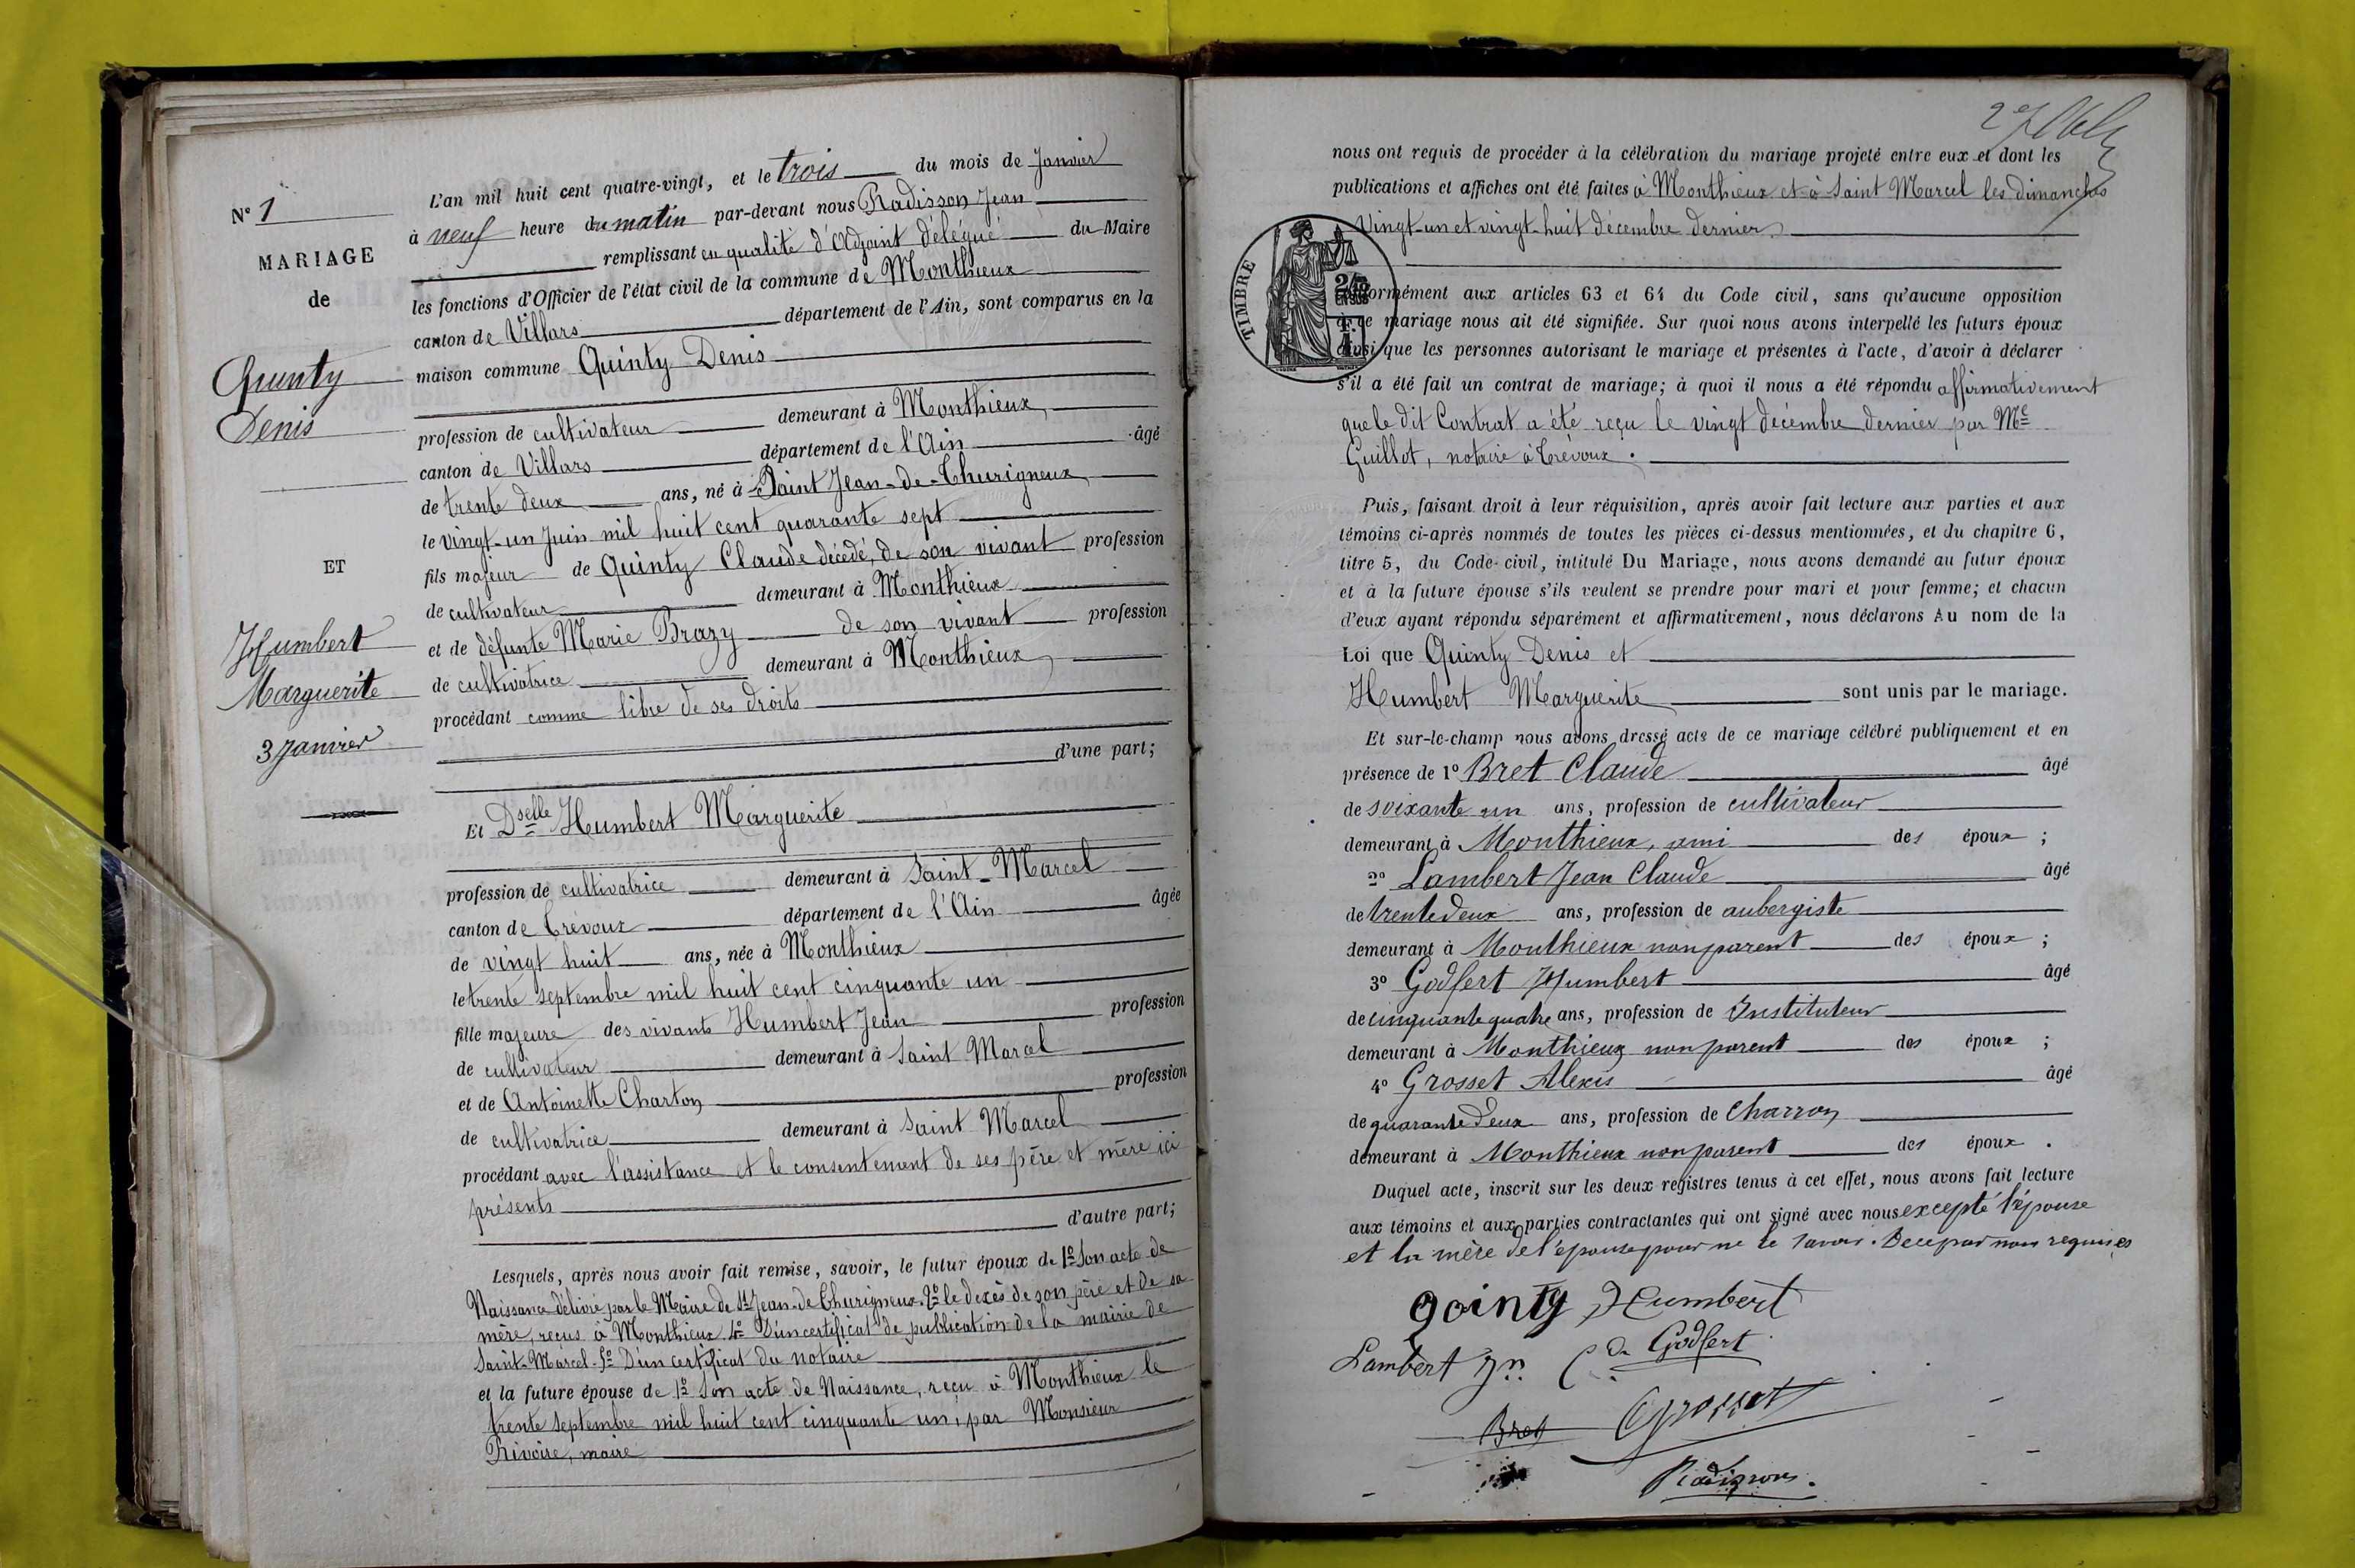 N° 1
MARIAGE
de
Quinty
Denis
ET
Humbert
Marguerite
3 Janvier
L'an mil huit cent quatre-vingt, et le trois du mois de Janvier
à neuf heure du matin par-devant nous Radisson Jean
remplissant en qualité d'Adjoint délégué du Maire
les fonctions d'Officier de l'état civil de la commune de Monthieux
canton de Villars département de l'Ain, sont comparus en la
maison commune Quinty Denis
profession de cultivateur demeurant à Monthieux
canton de Villars département de l'Ain âgé
de trente deux ans, né à Saint Jean-de-Thurigneux
le vingt-un Juin mil huit cent quarante sept
fils majeur de Quinty Claude décédé, de son vivant profession
de cultivateur demeurant à Monthieux
et de défunte Marie Brazy de son vivant profession
de cultivatrice demeurant à Monthieux
procédant comme libre de ses droits
d'une part;
Et Dselle Humbert Marguerite
profession de cultivatrice demeurant à Saint-Marcel
canton de Trévoux département de l'Ain âgée
de vingt huit ans, née à Monthieux
le trente septembre mil huit cent cinquante un
fille majeure des vivants Humbert Jean profession
de cultivateur demeurant à Saint Marcel
et de Antoinette Charton profession
de cultivatrice demeurant à Saint Marcel
procédant avec l'assistance et le consentement de ses père et mère ici
présents
d'autre part;
Lesquels, après nous avoir fait remise, savoir, le futur époux de 1° Son acte de
Naissance délivré par le Maire de St Jean-de Thurigneux. 2° le décès de son père et de sa
mère, reçus à Monthieux. 4° D'un certificat de publication de la mairie de
Saint-Marcel. 5° D'un certificat du notaire
et la future épouse de 1° Son acte de Naissance, reçu à Monthieux le
trente septembre mil huit cent cinquante un, par Monsieur
Rivoire, maire
nous ont requis de procéder à la célébration du mariage projeté entre eux et dont les
publications et affiches ont été faites à Monthieux et à Saint Marcel les dimanches
Vingt-un et vingt-huit décembre dernier
TIMBRE
conformément aux articles 63 et 64 du Code civil, sans qu'aucune opposition
à ce mariage nous ait été signifiée. Sur quoi nous avons interpellé les futurs époux
ainsi que les personnes autorisant le mariage et présentes à l'acte, d'avoir à déclarer
s'il a été fait un contrat de mariage; à quoi il nous a été répondu affirmativement
que le dit Contrat a été reçu le vingt décembre dernier par Me
Guillot, notaire à Trévoux.
Puis, faisant droit à leur réquisition, après avoir fait lecture aux parties et aux
témoins ci-après nommés de toutes les pièces ci-dessus mentionnées, et du chapitre 6,
titre 5, du Code civil, intitulé Du Mariage, nous avons demandé au futur époux
et à la future épouse s'ils veulent se prendre pour mari et pour femme; et chacun
d'eux ayant répondu séparément et affirmativement, nous déclarons Au nom de la
Loi que Quinty Denis et
Humbert Marguerite sont unis par le mariage.
Et sur-le-champ nous avons dressé acte de ce mariage célébré publiquement et en
présence de 1° Bret Claude âgé
de soixante un ans, profession de cultivateur
demeurant à Monthieux, ami des époux ;
2° Lambert Jean Claude âgé
de trente deux ans, profession de aubergiste
demeurant à Monthieux non parent des époux ;
3° Godfert Humbert âgé
de cinquante quatre ans, profession de Instituteur
demeurant à Monthieux non parent des époux ;
4° Grosset Alexis âgé
de quarante deux ans, profession de Charron
demeurant à Monthieux non parent des époux .
Duquel acte, inscrit sur les deux registres tenus à cet effet, nous avons fait lecture
aux témoins et aux parties contractantes qui ont signé avec nous excepté l'épouse
et la mère de l'épouse pour ne le savoir. De ce par nous requises
Qointy Humbert
Lambert Jn Cde Godfert
Bret Grosset
Radisson.